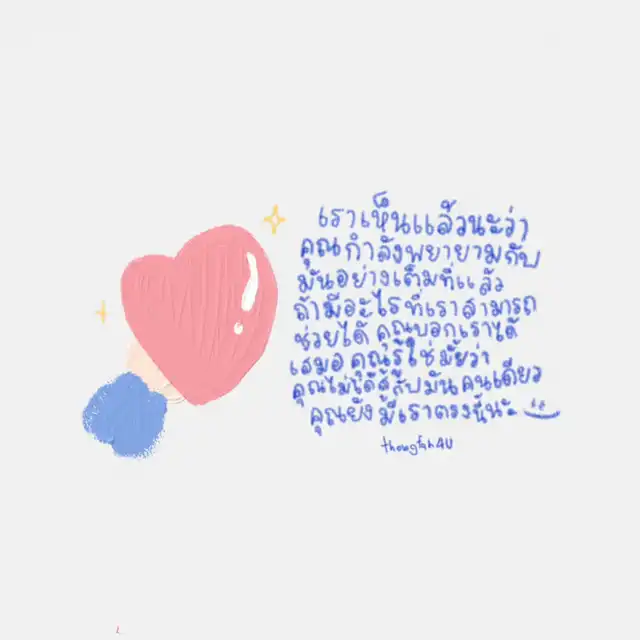 เราเห็นแล้วนะว่า
คุณกำลังพยายามกับ
มันอย่างเต็มที่แล้ว
ถ้ามีอะไรที่เราสามารถ
ช่วยได้ คุณบอกเราได้
เสมอ คุณรู้ใช่มั้ยว่า
คุณไม่ได้สู้กับมันคนเดียว
คุณยังมีเราตรงนี้นะ